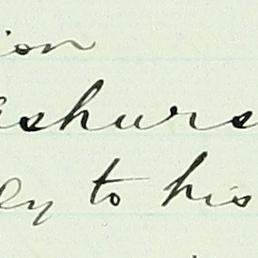 ion
shurs
ey to his